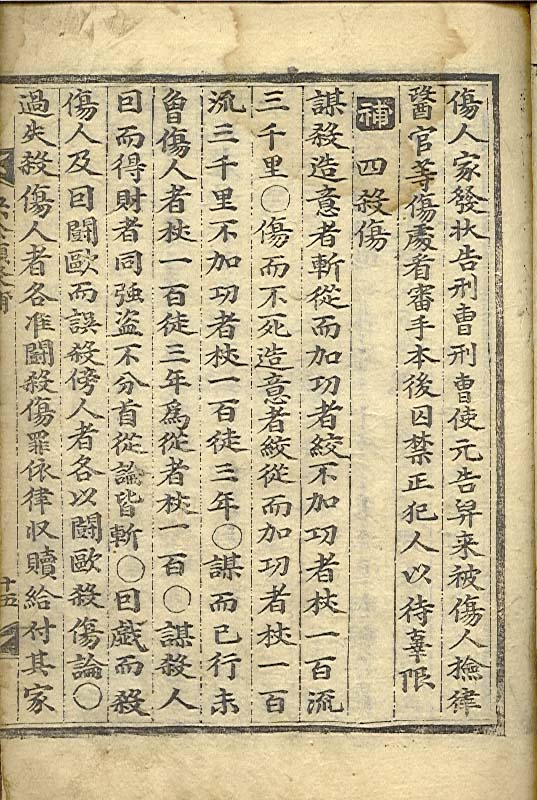 傷人家發狀告刑曹刑曹使元告舁来被傷人撿律
醫官等傷處看審手本後囚禁正犯人以待辜限
補 四殺傷
謀殺造意者斬從而加功者絞不加功者杖一百流
三千里○傷而不死造意者絞從而加功者杖一百
流三千里不加功者杖一百徒三年○謀而已行未
曾傷人者杖一百徒三年爲從者杖一百○謀殺人
因而得財者同強盗不分首從論皆斬○因戯而殺
傷人及因鬪毆而誤殺傍人者各以鬪毆殺傷論○
過失殺傷人者各准鬪殺傷罪依律収贖給付其家
十五